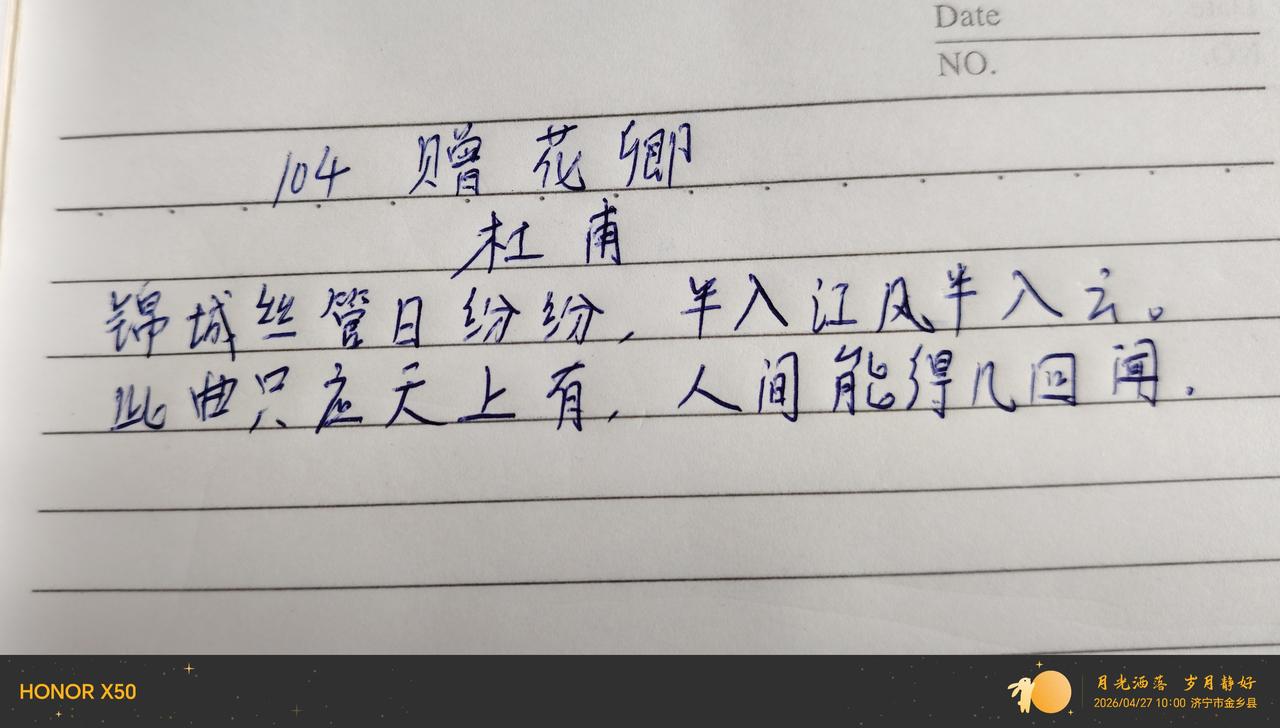 Date
NO.
104 赠花卿
杜甫
锦城丝管日纷纷，半入江风半入云。
此曲只应天上有，人间能得几回闻.
HONOR X50
月光洒落 岁月静好
2026/04/27 10:00 济宁市金乡县